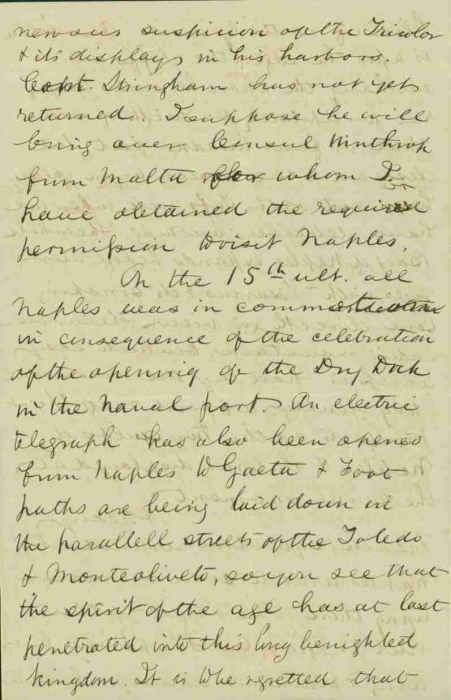 nervous suspicion of the Tricolor
& its displays in his harbors.
Capt. Stringham has not yet
returned. I suppose he will
bring over Consul Winthrop
from Malta for whom I
have obtained the required
permission to visit Naples.
On the 15th ult. all
Naples was in commotion
in consequence of the celebration
of the opening of the Dry Dock
in the Naval port. An electric
telegraph has also been opened
from Naples to Gaeta & Foot
paths are being laid down in
the parallell streets of the Toledo
& Monteoliveto, so you see that
the spirit of the age has at last
penetrated into this long benighted
kingdom. It is to be regretted that